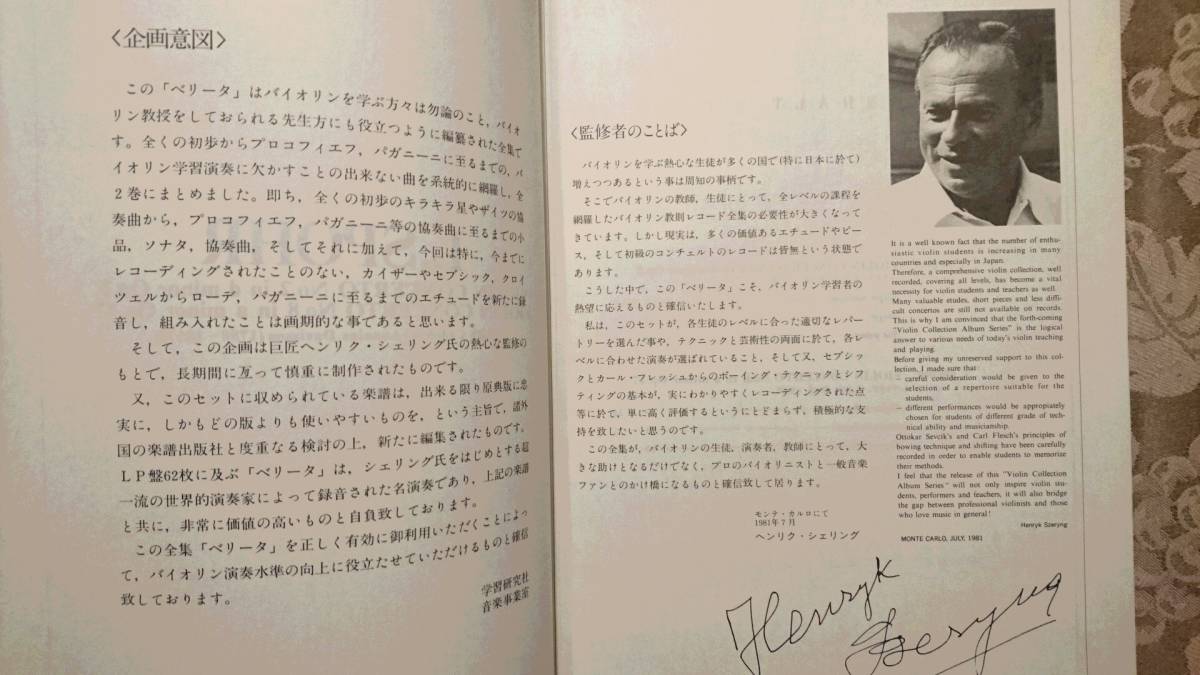 〈企画意図〉
この「ベリータ」はバイオリンを学ぶ方々は勿論のこと，バイオ
リン教授をしておられる先生方にも役立つように編纂された全集で
す。全くの初歩からプロコフィエフ，パガニーニに至るまでの，バ
イオリン学習演奏に欠かすことの出来ない曲を系統的に網羅し，全
2巻にまとめました。即ち，全くの初歩のキラキラ星やザイツの協
奏曲から，プロコフィエフ，パガニーニ等の協奏曲に至るまでの小
品，ソナタ，協奏曲，そしてそれに加えて，今回は特に，今までに
レコーディングされたことのない，カイザーやセブシック，クロイ
ツェルからローデ，パガニーニに至るまでのエチュードを新たに録
音し，組み入れたことは画期的な事であると思います。
そして，この企画は巨匠ヘンリク・シェリング氏の熱心な監修の
もとで，長期間に亙って慎重に制作されたものです。
又，このセットに収められている楽譜は，出来る限り原典版に忠
実に，しかもどの版よりも使いやすいものを，という主旨で，諸外
国の楽譜出版社と度重なる検討の上，新たに編集されたものです。
LP盤62枚に及ぶ「ベリータ」は，シェリング氏をはじめとする超
一流の世界的演奏家によって録音された名演奏であり，上記の楽譜
と共に，非常に価値の高いものと自負致しております。
この全集「ベリータ」を正しく有効に御利用いただくことによっ
て，バイオリン演奏水準の向上に役立たせていただけるものと確信
致しております。
学習研究社
音楽事業室
〈監修者のことば〉
バイオリンを学ぶ熱心な生徒が多くの国で(特に日本に於て)
増えつつあるという事は周知の事柄です。
そこでバイオリンの教師，生徒にとって，全レベルの課程を
網羅したバイオリン教則レコード全集の必要性が大きくなって
きています。しかし現実は，多くの価値あるエチュードやピー
ス，そして初級のコンチェルトのレコードは皆無という状態で
あります。
こうした中で，この「ベリータ」こそ，バイオリン学習者の
熱望に応えるものと確信いたします。
私は，このセットが，各生徒のレベルに合った適切なレパー
トリーを選んだ事や，テクニックと芸術性の両面に於て，各レ
ベルに合わせた演奏が選ばれていること，そして又，セブシッ
クとカール・フレッシュからのボーイング・テクニックとシフ
ティングの基本が，実にわかりやすくレコーディングされた点
等に於て，単に高く評価するというにとどまらず，積極的な支
持を致したいと思うのです。
この全集が，バイオリンの生徒，演奏者，教師にとって，大
きな助けとなるだけでなく，プロのバイオリニストと一般音楽
ファンとのかけ橋になるものと確信致して居ります。
モンテ・カルロにて
1981年7月
ヘンリク・シェリング
It is a well known fact that the number of enthu-
siastic violin students is increasing in many
countries and especially in Japan.
Therefore, a comprehensive violin collection, well
recorded, covering all levels, has become a vital
necessity for violin students and teachers as well.
Many valuable etudes, short pieces and less diffi-
cult concertos are still not available on records.
This is why I am convinced that the forth-coming
"Violin Collection Album Series" is the logical
answer to various needs of today's violin teaching
and playing.
Before giving my unreserved support to this col-
lection, I made sure that:
– careful consideration would be given to the
selection of a repertoire suitable for the
students,
– different performances would be appropiately
chosen for students of different grade of tech-
nical ability and musicianship.
Ottokar Sevcik's and Carl Flesch's principles of
bowing technique and shifting have been carefully
recorded in order to enable students to memorize
their methods.
I feel that the release of this "Violin Collection
Album Series" will not only inspire violin stu-
dents, performers and teachers, it will also bridge
the gap between professional violinists and those
who love music in general!
Henryk Szeryng
MONTE CARLO, JULY, 1981
Henryk
Szeryng